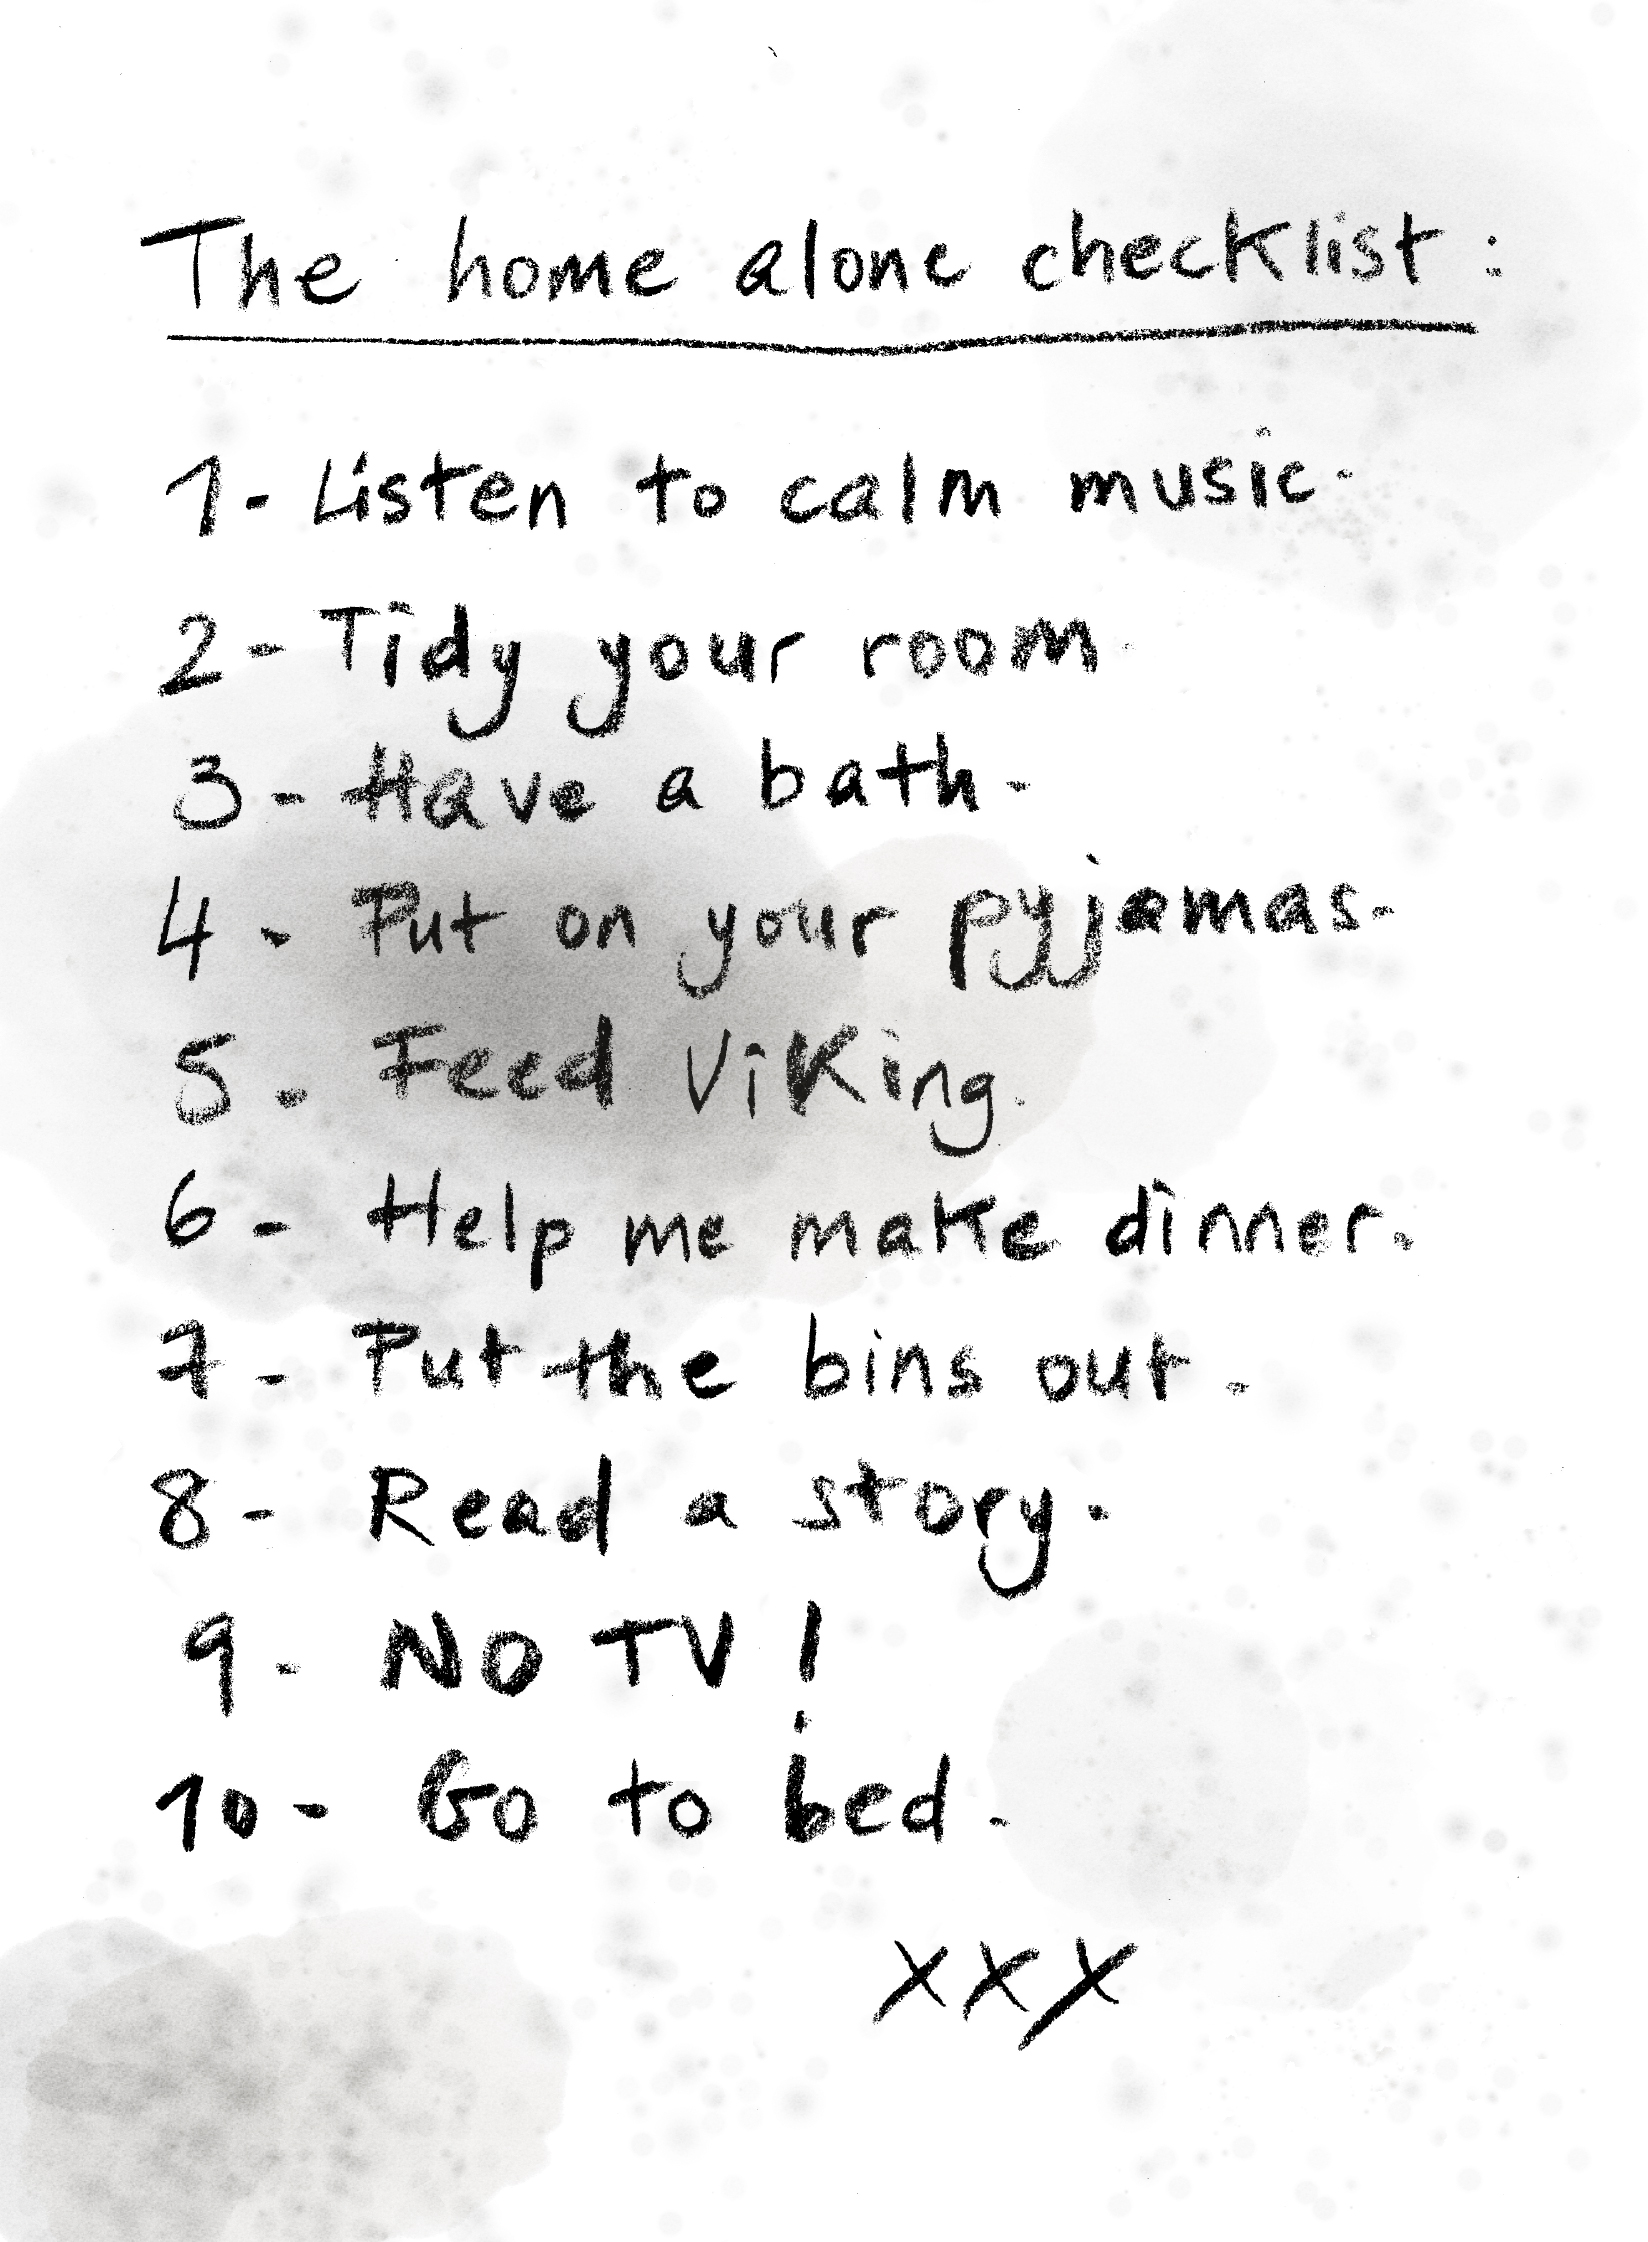 The home alone checklist :
1- Listen to calm music.
2- Tidy your room.
3- Have a bath.
4- Put on your pyjamas.
5- Feed Viking.
6- Help me make dinner.
7- Put the bins out.
8- Read a story.
9- NO TV !
10- Go to bed.
xxx